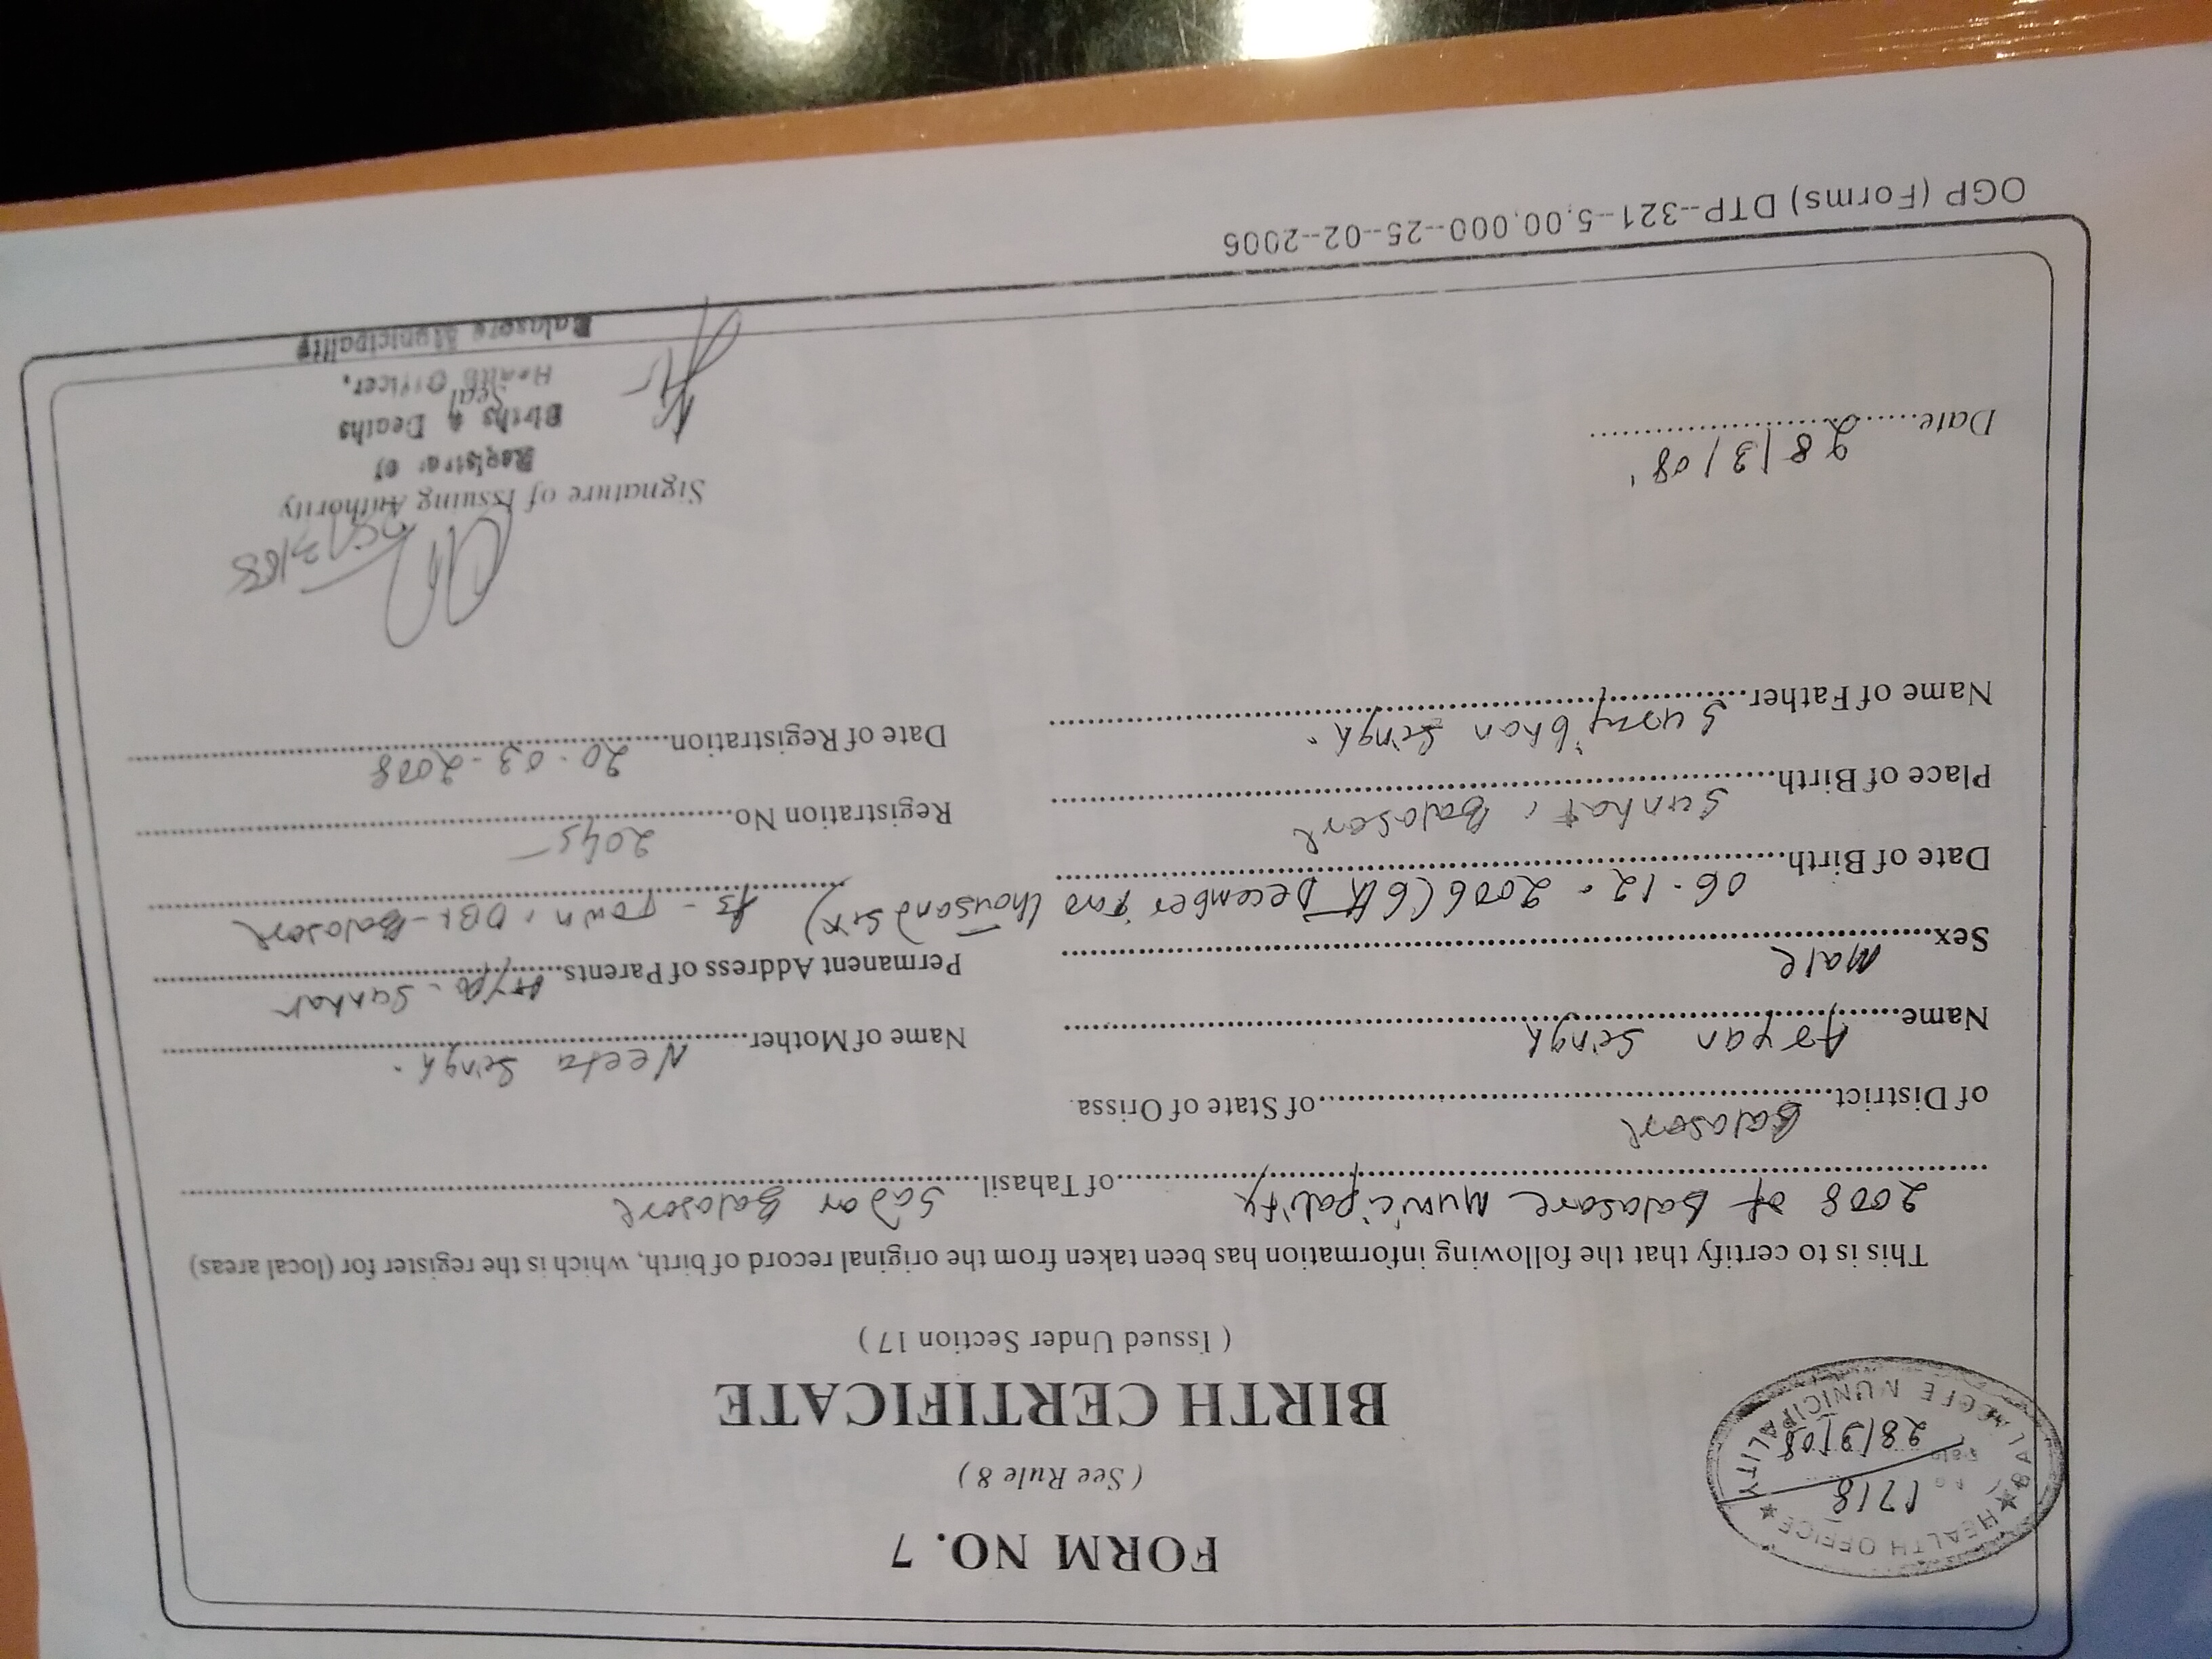 FORM NO. 7
( See Rule 8 )
HEALTH OFFICE
1718
28/3/08
MUNICIPALITY
BIRTH CERTIFICATE
( Issued Under Section 17 )
This is to certify that the following information has been taken from the original record of birth, which is the register for (local areas)
2008 of Balasore Municipality of Tahasil Sadar Balasore
of District Balasore of State of Orissa.
Name Aryan Singh
Sex Male
Date of Birth 06-12-2006 (6th December Two thousand six)
Place of Birth Sunhat, Balasore
Name of Father Surajbhan Singh.
Name of Mother Neeta Singh.
Permanent Address of Parents Sunhat
Town, Balasore
Registration No. 2045
Date of Registration 20-03-2008
Date 28/3/08
Signature of Issuing Authority
Registrar of
Births & Deaths
Seal
Health Officer,
Balasore Municipality
OGP (Forms) DTP--321--5,00,000--25--02--2006